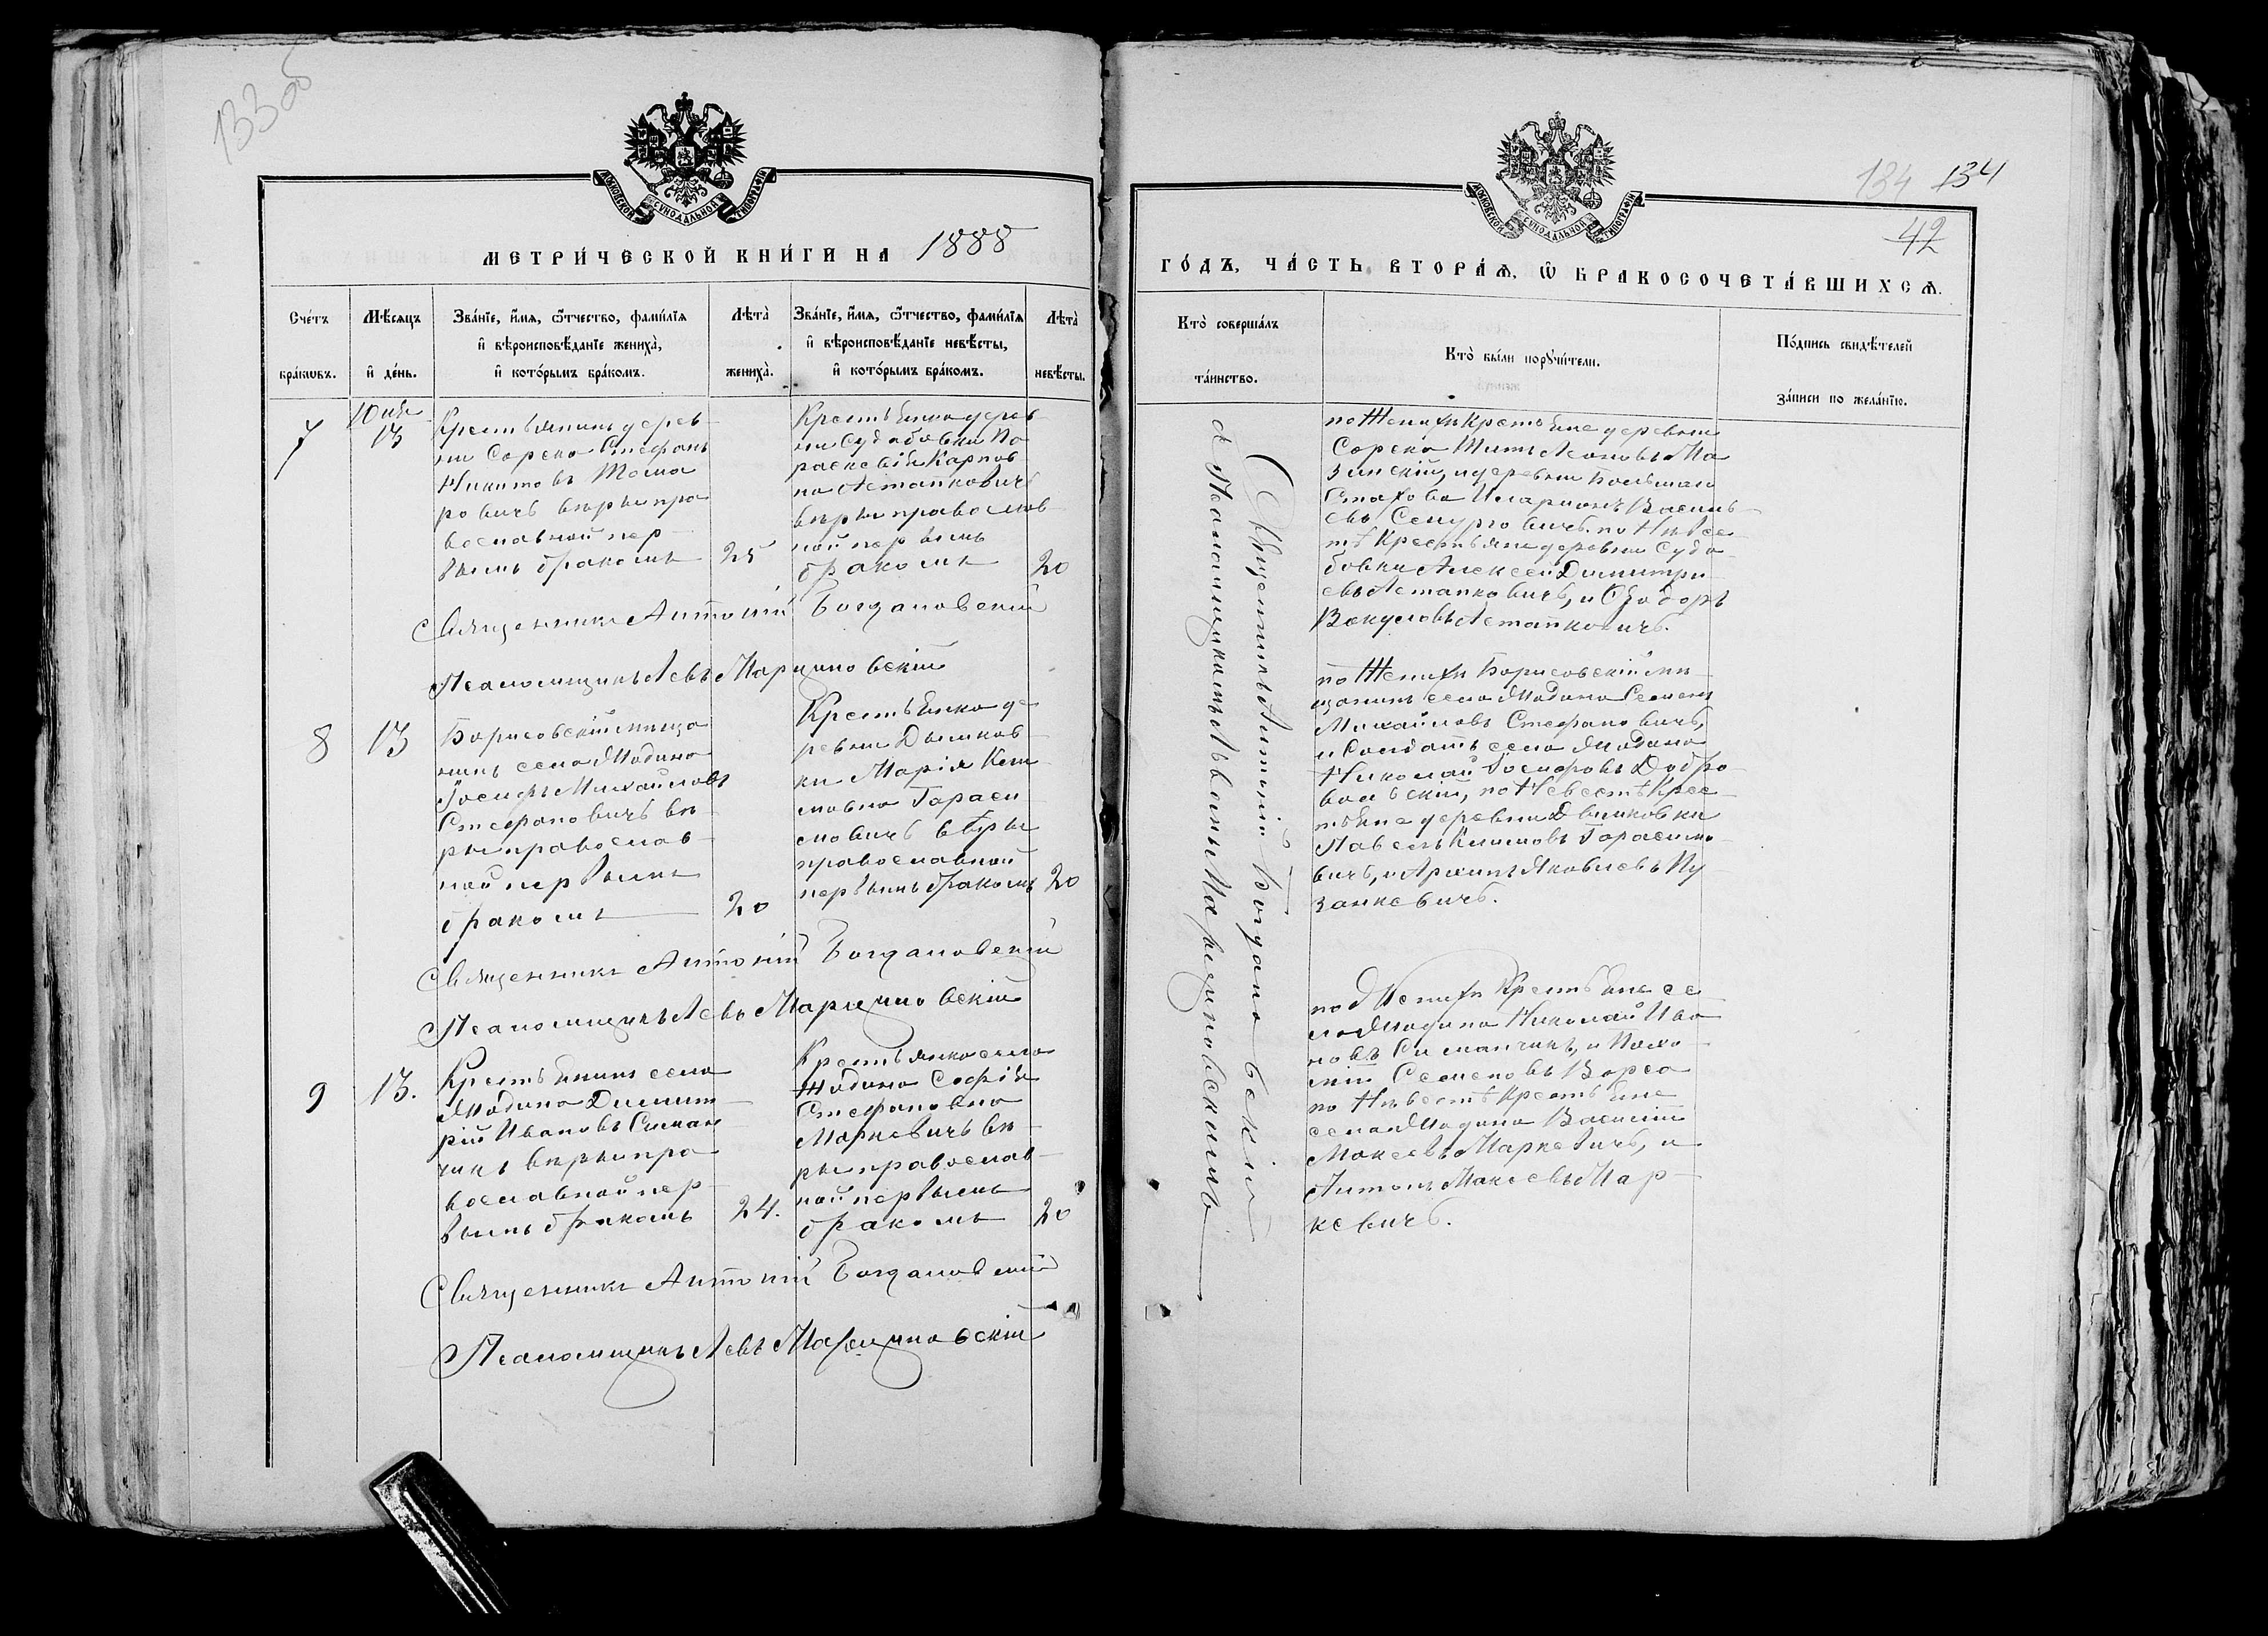 133об
МОСКОВСКОЙ СУНОДАЛЬНОЙ ТИПОГРАФІИ
МЕТРИ́ЧЕСКОЙ КНИ́ГИ НА 1888
Сче́тъ бра́кѡвъ.
Мѣ́сяцъ и҆ де́нь.
Зва́нїе, и҆́мя, ѿтчество, фами́лїя
и҆ вѣроисповѣ́данїе жениха̀,
и҆ кото́рымъ бра́комъ.
Лѣта̀
жениха̀.
Зва́нїе, и҆́мя, ѿтчество, фами́лїя
и҆ вѣроисповѣ́данїе невѣ́сты,
и҆ кото́рымъ бра́комъ.
Лѣта̀
невѣ́сты.
7
13
Крестьянинъ дерев-
ни Сорска Стефанъ
Никитовъ
вѣры пра
вославной пер-
вымъ бракомъ
25
Крестьянка дерев-
ни Судобовки Па
раскевія Карпов
на Астапковичъ
вѣры православ-
ной первымъ
бракомъ
20
Священникъ Антоній Богдановскій
Псаломщикъ Левъ Марциновскій
8
13
Борисовскій мѣща
нинъ села Жодина
Іосифъ Михайловъ
Стефановичъ вѣ-
ры православ-
ной первымъ
бракомъ
20
Крестьянка де
ревни Дымков-
ки Марія Кли
мовна Гараси
мовичъ вѣры
православной
первымъ бракомъ
20
Священникъ Антоній Богдановскій
Псаломщикъ Левъ Марциновскій
9
13.
Крестьянинъ села
Жодина Димит-
рій Ивановъ Симан
чикъ вѣры пра
вославной пер-
вымъ бракомъ
24.
Крестьянка села
Жодина Софія
Стефановна
Маркевичъ вѣ-
ры православ-
ной первымъ
бракомъ
20
Священникъ Антоній Богдановскій
Псаломщикъ Левъ Марциновскій
134 134
42
МОСКОВСКОЙ СУНОДАЛЬНОЙ ТИПОГРАФІИ
ГО́ДЪ, ЧА́СТЬ ВТОРА́Ѧ, Ѽ БРАКОСОЧЕТА́ВШИХСѦ.
Кто̀ соверша́лъ
та́инство.
Кто̀ бы́ли порꙋчи́тели.
По́дпись свидѣ́телей
за́писи по жела́нїю.
Священникъ Антоній Богдановскій
съ Псаломщикомъ Львомъ Марциновскимъ
по Женихѣ Крестьяне деревни
Сорска Титъ Леоновъ Ма
зинскій, и деревни Большаго
Стахова Иларіонъ Василь-
евъ по Невѣс
тѣ Крестьяне деревни Судо-
бовки Алексей Димитрі
евъ Астапковичъ, и Ѳеодоръ
Вакуловъ Астапковичъ.
по Женихѣ Борисовскій мѣ-
щанинъ села Жодина Семенъ
Михайловъ Стефановичъ,
и Солдатъ села Жодина
Николай Іосифовъ Добро-
вольскій, по Невестѣ Крес-
тьяне деревни Дымковки
Павелъ Климовъ Гарасимо-
вичъ, и Архипъ Яковлевъ Ку
занкевичъ.
по Женихѣ Крестьяне се
ла Жодина Николай Ива
новъ Симанчикъ, и
Семеновъ Варса
по Невестѣ Крестьяне
села Жодина Василій
Мокеевъ Маркевичъ, и
Антонъ Мокеевъ Мар-
кевичъ.